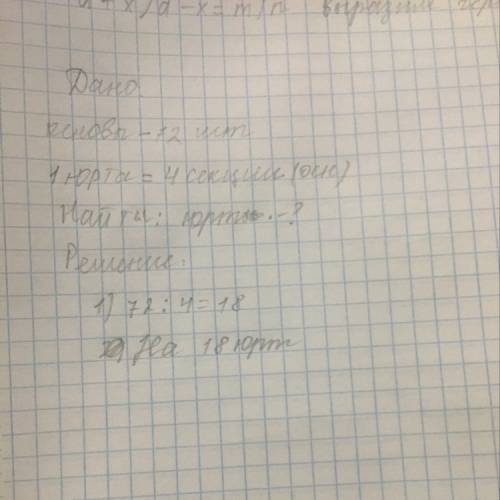 а + x/а - x = m/n выразим чер
Дано
основы - 72 шт
1 юрты = 4 секции (осн)
Найти: юрты - ?
Решение:
1) 72 : 4 = 18
На 18 юрт